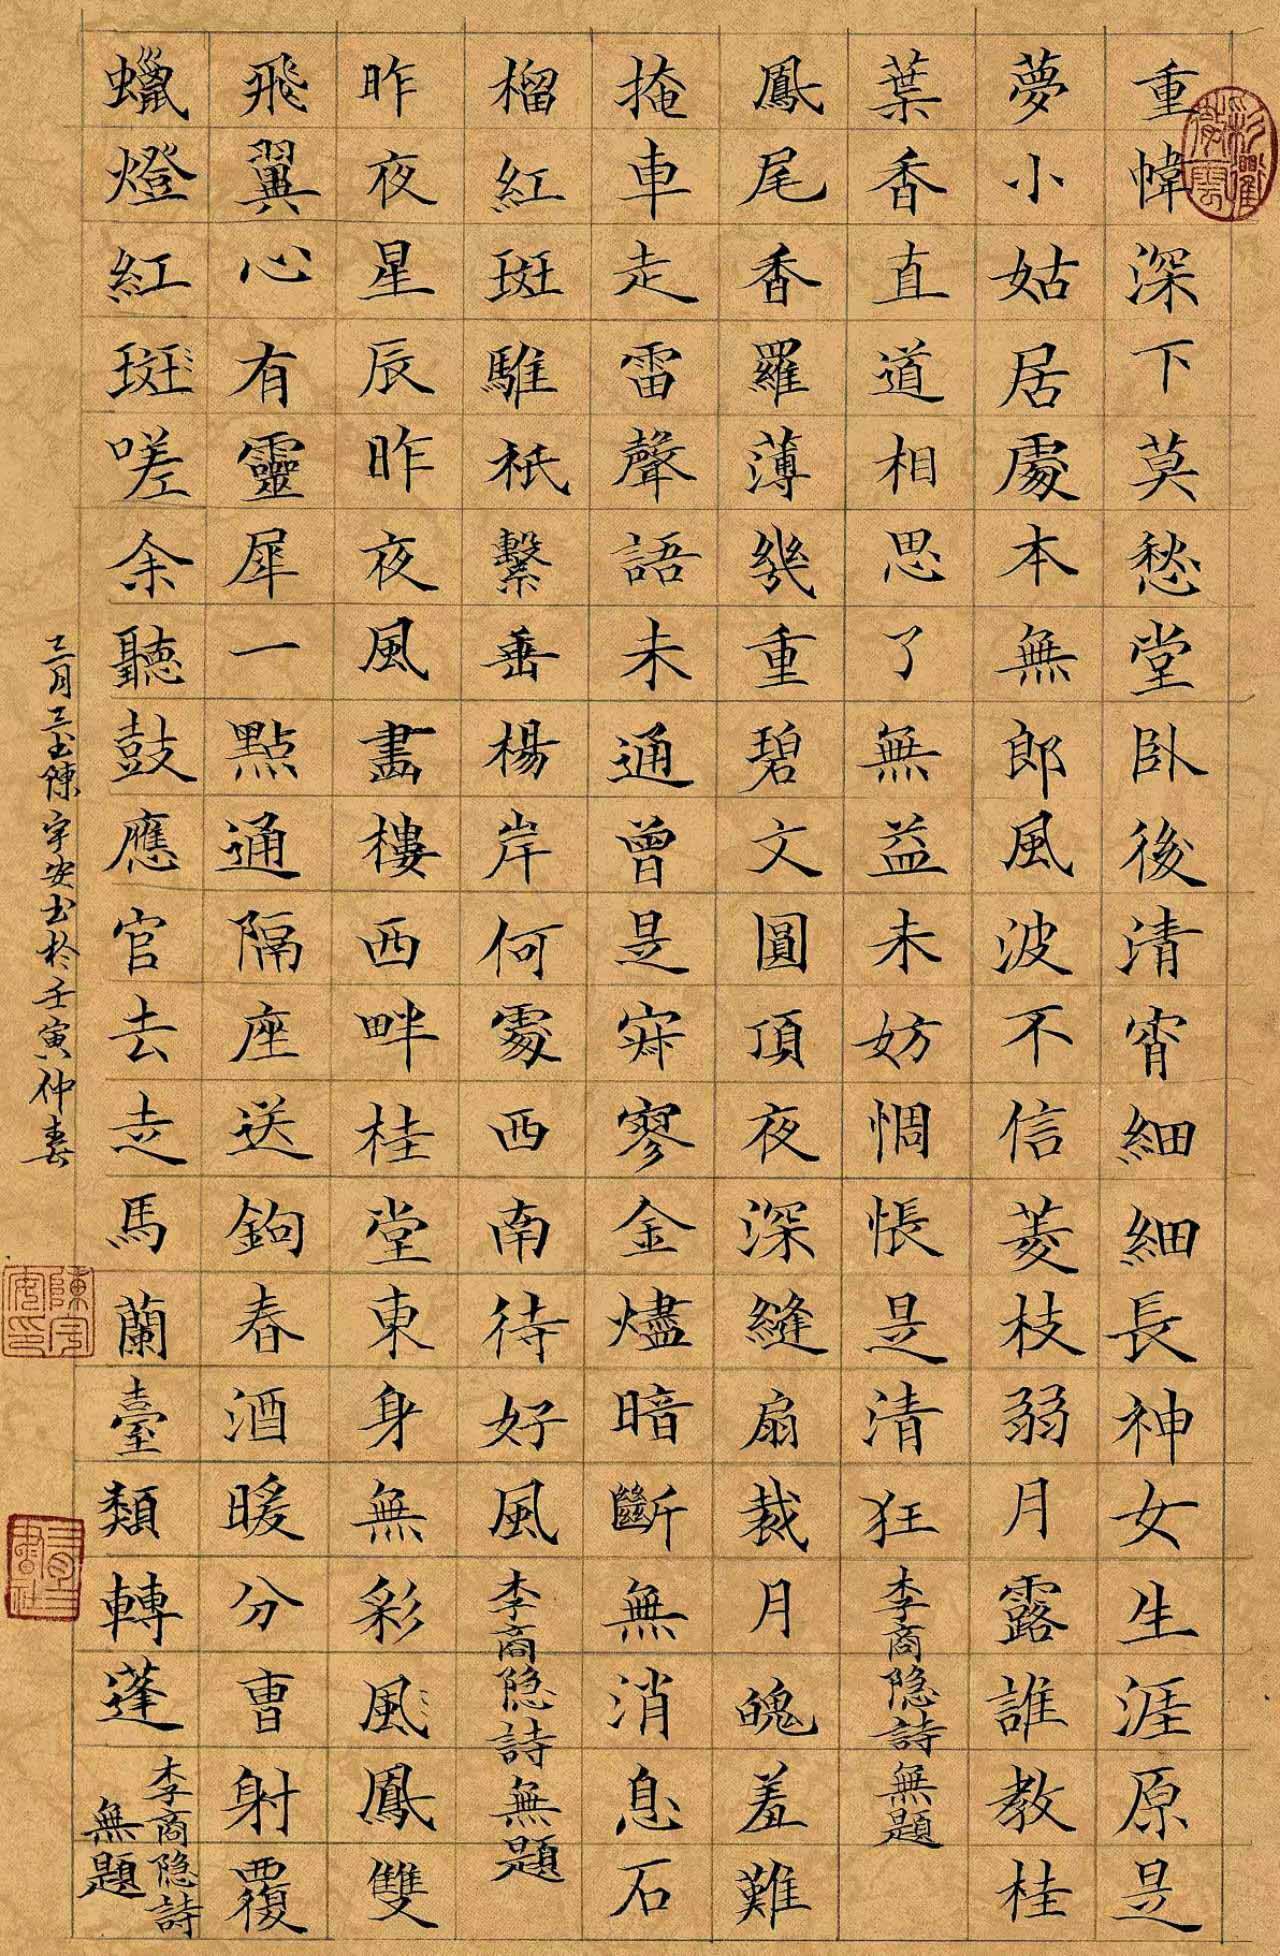 重幃深下莫愁堂卧後清宵細細長神女生涯原是
夢小姑居處本無郎風波不信菱枝弱月露誰教桂
葉香直道相思了無益未妨惆悵是清狂李商隐詩無題
鳳尾香羅薄幾重碧文圓頂夜深縫扇裁月魄羞難
掩車走雷聲語未通曾是寂寥金燼暗斷無消息石
榴紅斑騅秖繫垂楊岸何處西南待好風李商隐詩無題
昨夜星辰昨夜風畵樓西畔桂堂東身無彩風鳳雙
飛翼心有靈犀一點通隔座送鉤春酒暖分曹射覆
蠟燈紅斑嗟余聽鼓應官去走馬蘭臺類轉蓬李商隐詩
無題
三月三書陳宇安书於壬寅仲春
陳宇安印